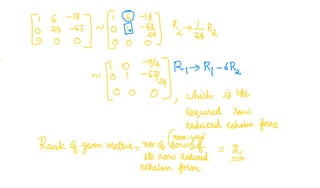 [1 6 -18; 0 24 -63; 0 0 0] ~ [1 6 -18; 0 1 -63/24; 0 0 0] R₂ → 1/24 R₂
~ [1 0 -9/4; 0 1 -63/24; 0 0 0] R₁ → R₁ - 6R₂
, which is the
required row
reduced echelon form
Rank of given matrix = no of (non-zero) rows of = 2
its row reduced
echelon form